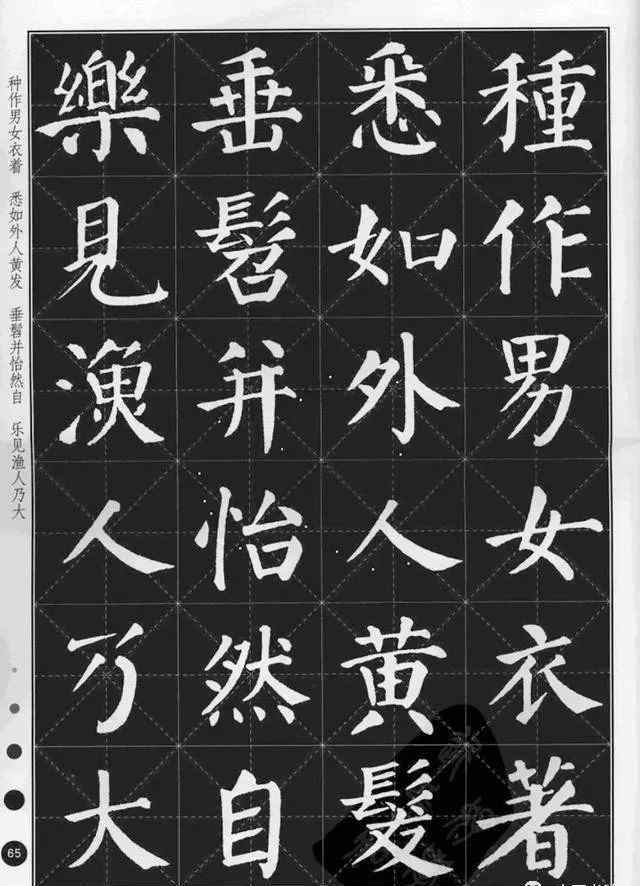 種作男女衣著
悉如外人黄髮
垂髫并怡然自
樂見漁人乃大
种作男女衣着 悉如外人黄发 垂髫并怡然自 乐见渔人乃大
65